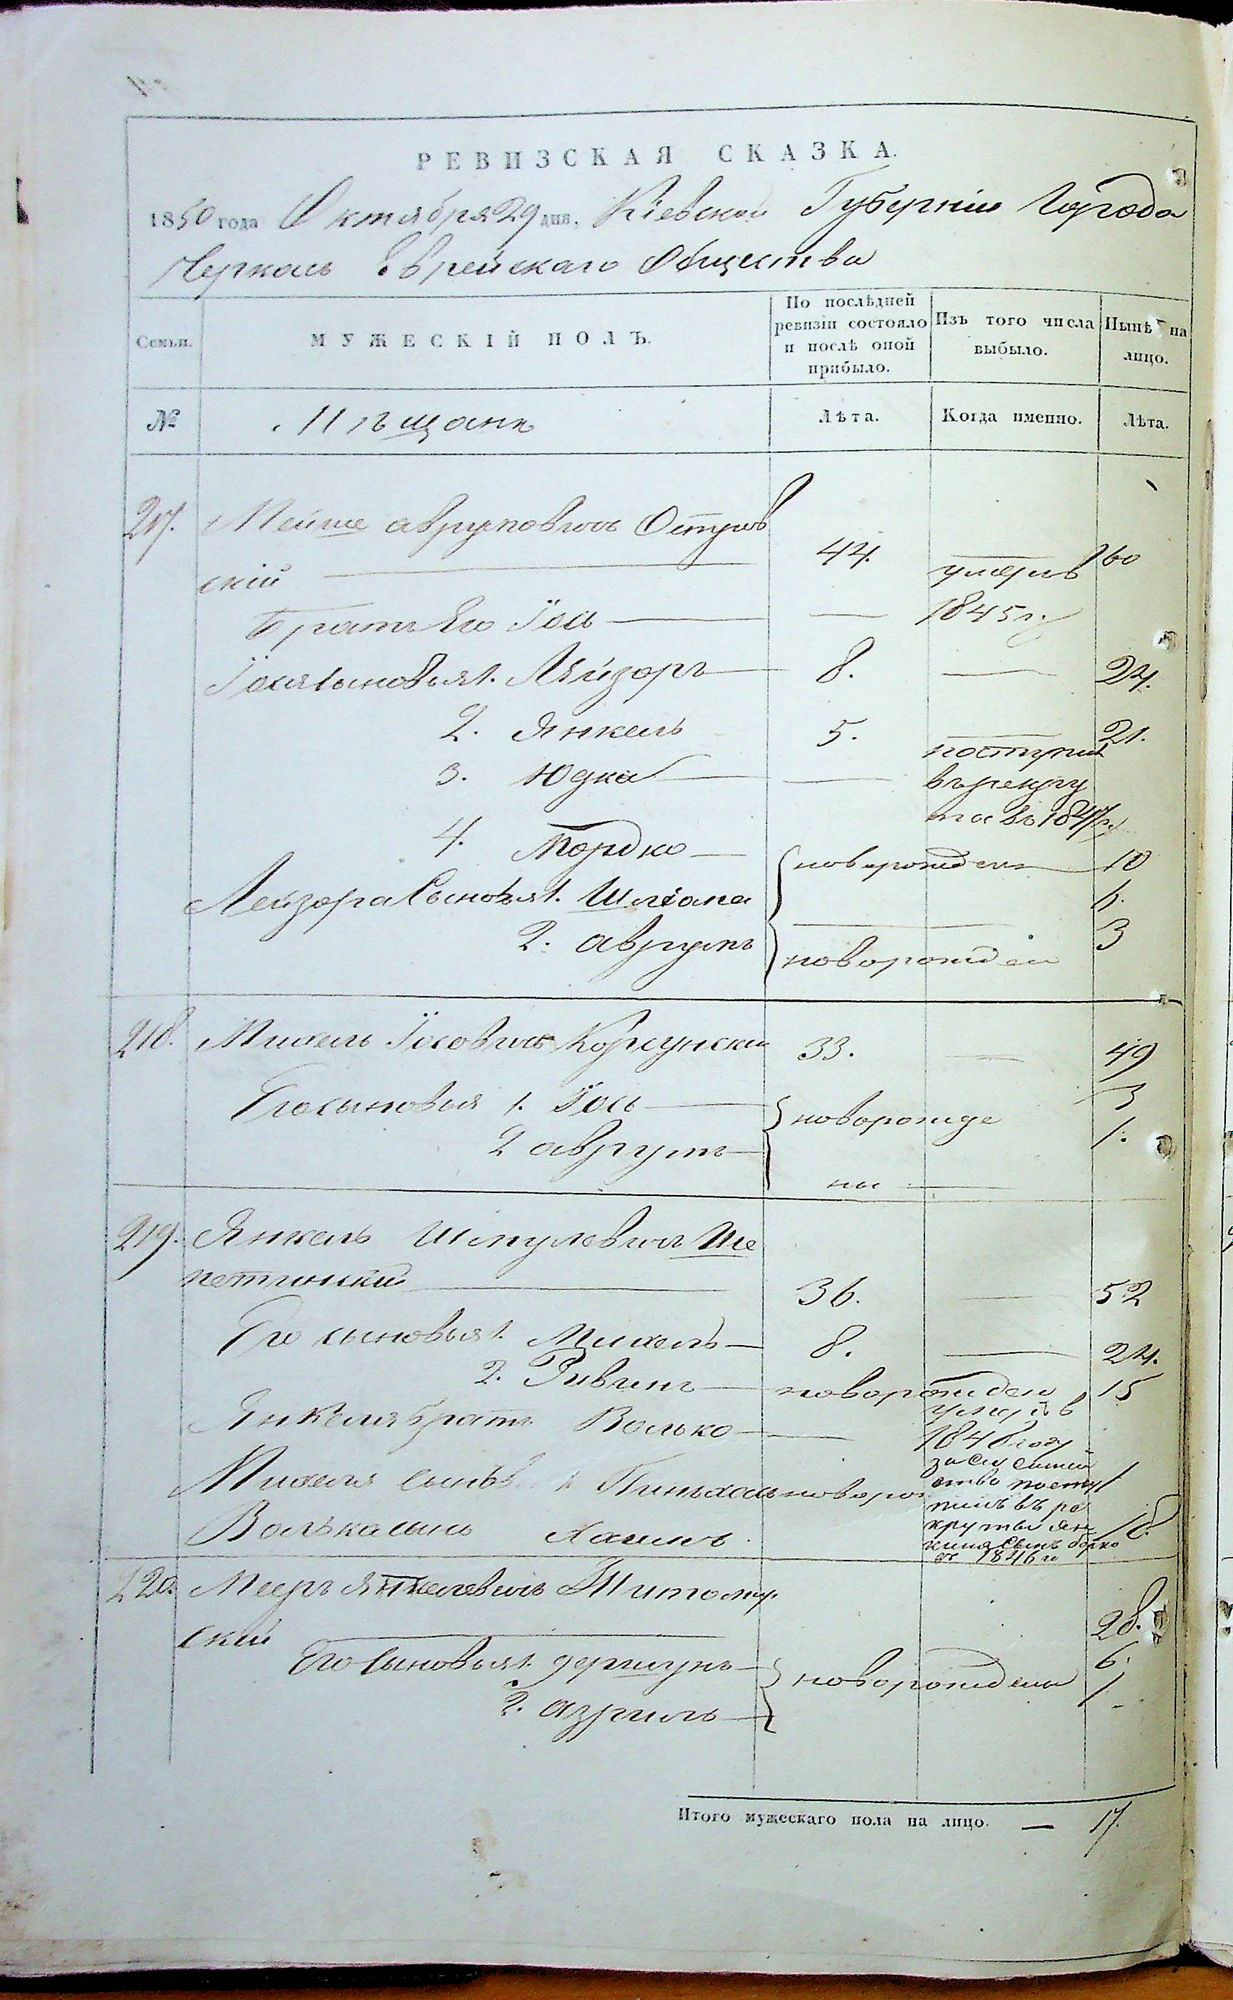 РЕВИЗСКАЯ СКАЗКА.
1850 года Октября 29 дня, Кіевской Губерніи Города
Черкасъ Еврейскаго Общества
Семьи.
МУЖЕСКІЙ ПОЛЪ.
По послѣдней ревизіи состояло и послѣ оной прибыло.
Изъ того числа выбыло.
Нынѣ на лицо.
№
Мѣщане
Лѣта.
Когда именно.
Лѣта.
217. Мейше Аврумовичъ Остров
скій 44. 60
умеръ
Братъ Его Іось 1845 г.
Іося сыновья 1. Лейзоръ 8. 24.
2. Янкель 5. 21.
поступил
3. Юдка въ рекру
та въ 1847 г.
4. Мордко новорожден 10
Лейзора сыновья 1. Шліома 6.
2. Аврумъ новорожден 3
218. Михель Іосовичъ Корсунски 33. 49
Его сыновья 1. Іось новорожде 3
2 Аврумъ 1.
ны
219. Янкель Шмулевичъ Ше
петински 36. 52
Его сыновья 1. Михель 8. 24.
2. Рувинъ новорожден 15
умеръ в
Янкеля братъ Волько 1848 году
за сие семей
Михеля сынъ 1 Пинхась новорож ство посту 1
пилъ въ ре
Волька сынъ Хаимъ круты Ян 18.
келя сынъ Борко
въ 1846 го
220. Мееръ Янкелевичъ Житомир
скій 28.
Его сыновья 1. Гершунъ новорождены 6.
2. Азриль 1
Итого мужескаго пола на лицо. — 17.